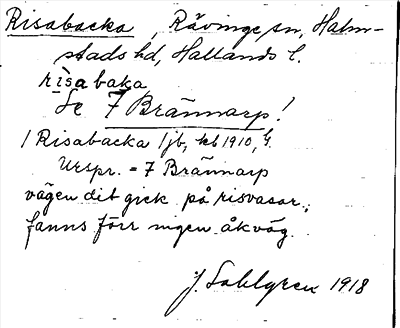 Risabacka, Rävinge sn, Halm-
stads hd, Hallands l.
rìsabaka
Se 7 Brännarp!
/ Risabacka /jb, kb 1910,
Urspr. = 7 Brännarp
vägen dit gick på risvasar;
fanns förr ingen åkväg.
J. Sahlgren 1918